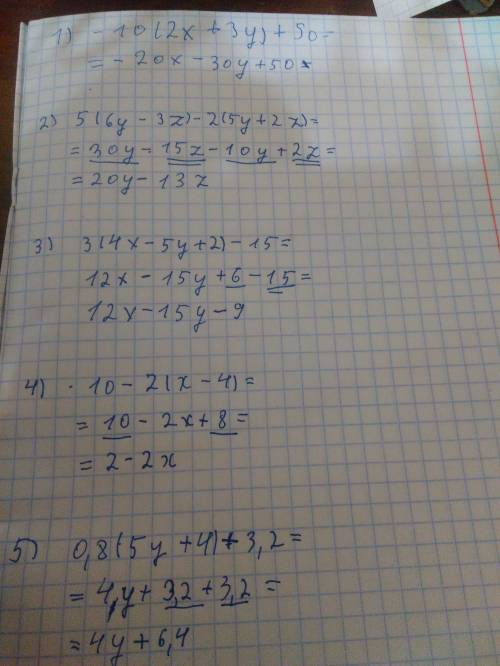 1) - 10(2x + 3y) + 50=
= - 20x - 30y + 50
2) 5(6y - 3z) - 2(5y + 2z)=
= 30y - 15z - 10y + 2z =
= 20y - 13z
3) 3(4x - 5y + 2) - 15 =
12x - 15y + 6 - 15 =
12x - 15y - 9
4) · 10 - 2(x - 4) =
= 10 - 2x + 8 =
= 2 - 2x
5) 0,8(5y + 4) + 3,2 =
= 4y + 3,2 + 3,2 =
= 4y + 6,4